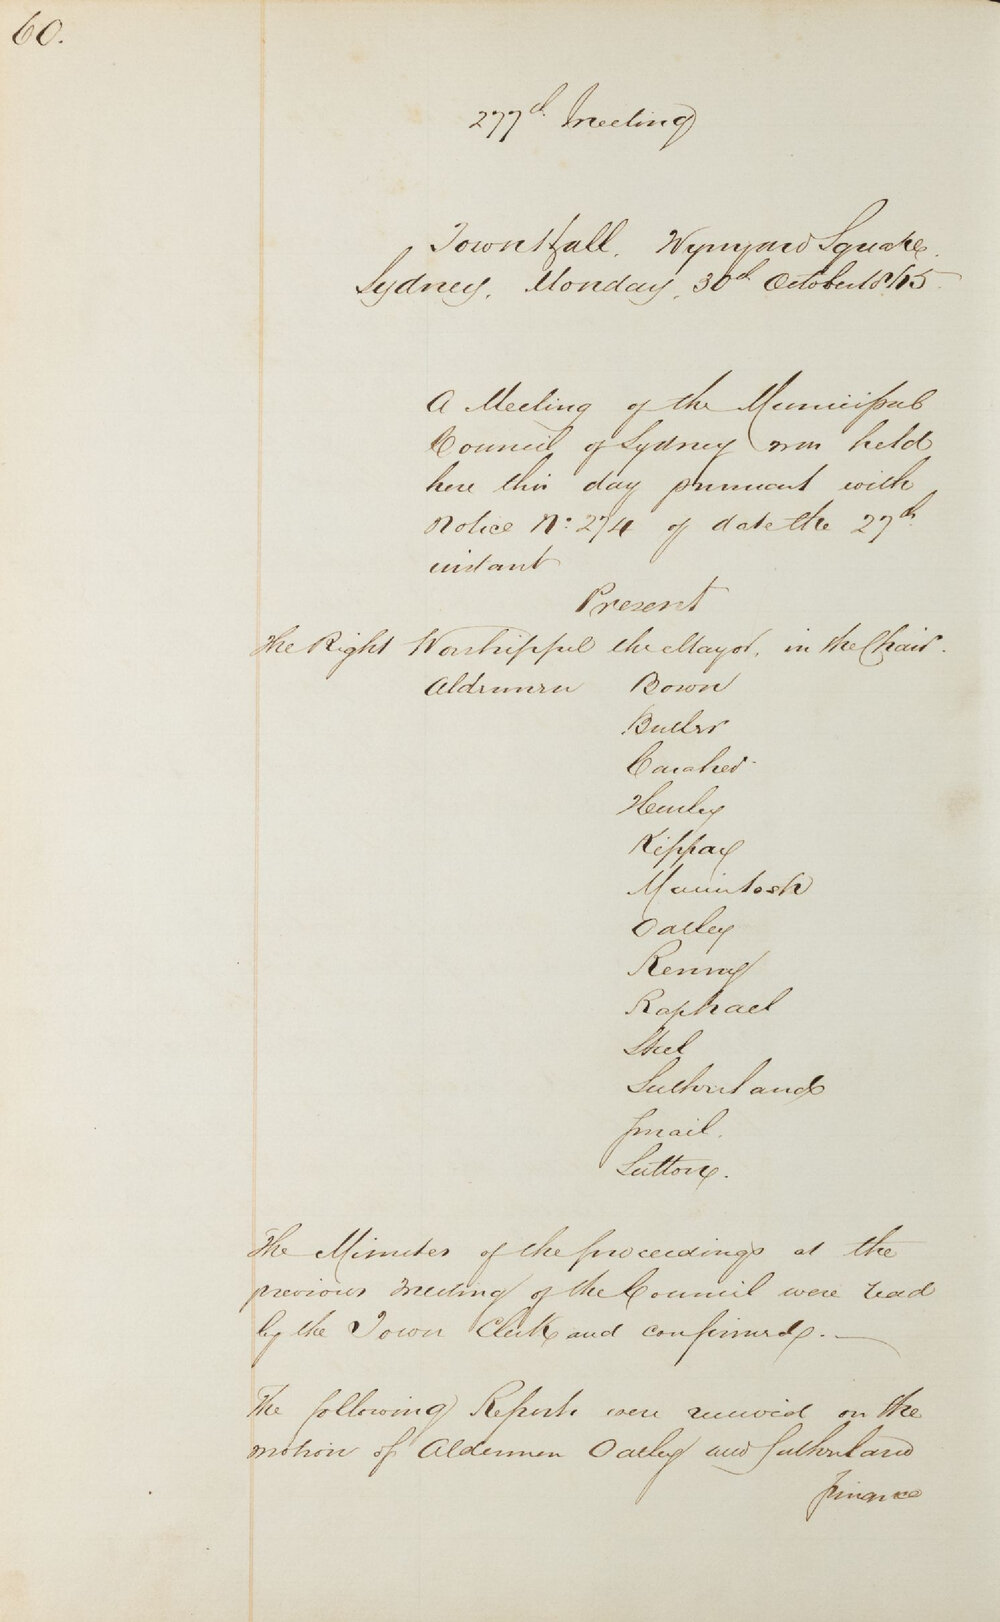 60.
277th Meeting
Town Hall. Wynyard Square.
Sydney, Monday, 30th October 1865.
A Meeting of the Municipal
Council of Sydney was held
here this day pursuant with
Notice No: 274 of date the 27th
instant
Present
The Right Worshipful the Mayor, in the Chair.
Aldermen Bown
Butler
Caraher
Hurley
Kippax
Macintosh
Oatley
Renny
Raphael
Steel
Sutherland
Smail.
Sutton.
The Minutes of the proceedings at the
previous Meeting of the Council were read
by the Town Clerk and confirmed.
The following Reports were received on the
motion of Aldermen Oatley and Sutherland
Finance